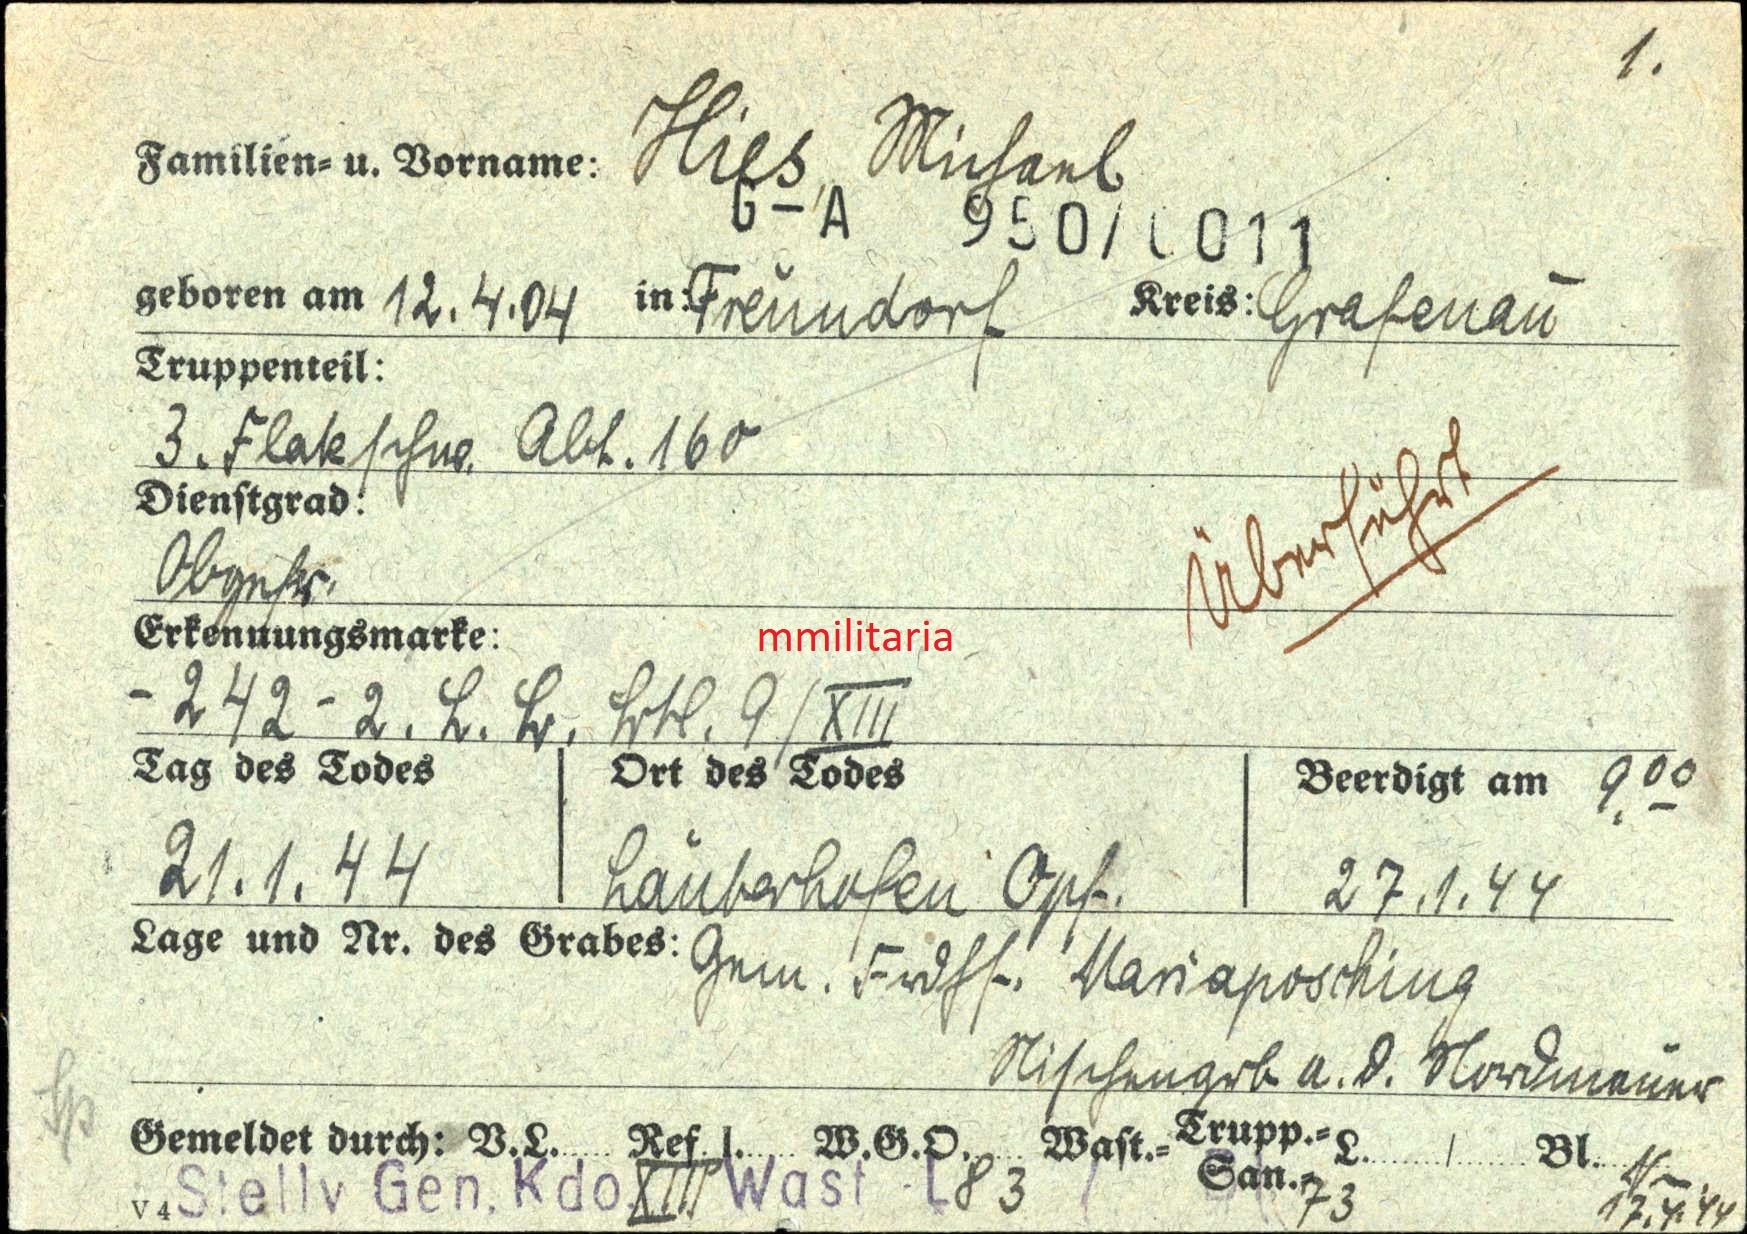 1.
Familien- u. Vorname: Hies, Michael
G-A 950/ 011
geboren am 12.4.04 in: Freundorf Kreis: Grafenau
Truppenteil:
3. Flakschw. Abt. 160
Überführt
Dienstgrad:
Obgefr.
Erkennungsmarke:
mmilitaria
-242- 2. L. Br. 9/XIII
Tag des Todes Ort des Todes Beerdigt am 9.00
21.1.44 Lauterhofen Opf. 27.1.44
Lage und Nr. des Grabes: Gem. Frdhf. Mariaposching
Nischengrb a. d. Nordmauer
Gemeldet durch: V.L. Ref. W.G.O. Wast.- Trupp.- San.- L. / Bl.
V 4 Stellv Gen. Kdo. XIII Wast L 83 / 73
17.4.44